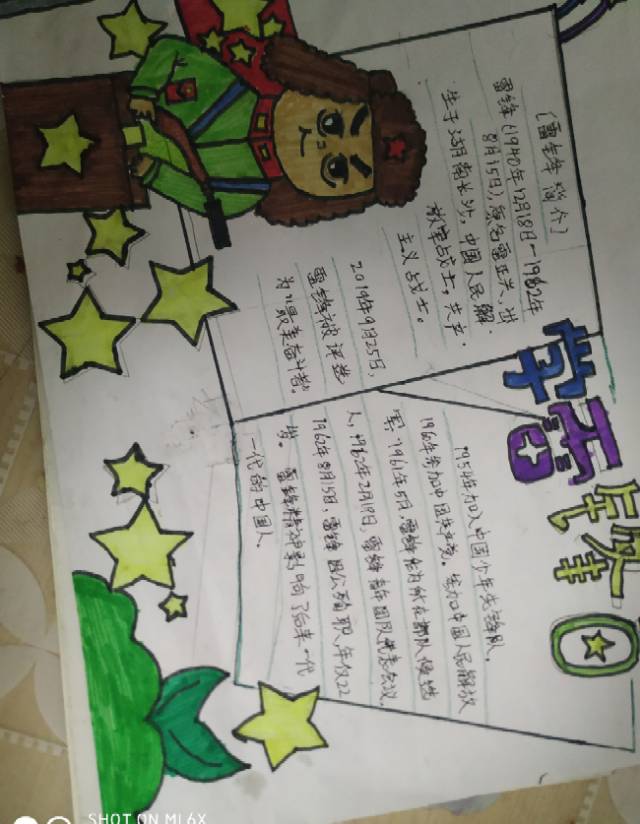 学雷锋
(雷锋简介)
雷锋(1940年12月18日—1962年
8月15日),原名雷正兴、出
生于湖南长沙,中国人民解
放军战士,共产
主义战士。
2019年9月25日,
雷锋被评选
为'最美奋斗者。
1954年加入中国少年先锋队。
1960年参加中国共产党。参加中国人民解放
军,1961年5月,雷锋作为所在部队候选
人,1962年2月19日,雷锋
1962年8月15日,雷锋因公殉职,年仅22
岁。雷锋精神影响了后来一代
一代的中国人
SHOT ON MI 6X